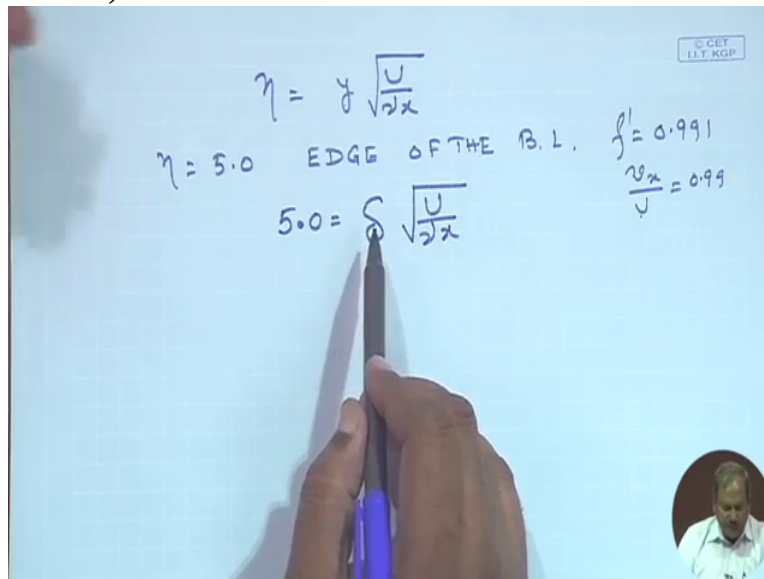 © CET
I.I.T. KGP
η = y √(U/νx)
η = 5.0 EDGE OF THE B.L. f' = 0.991
v_x/U = 0.99
5.0 = δ √(U/νx)